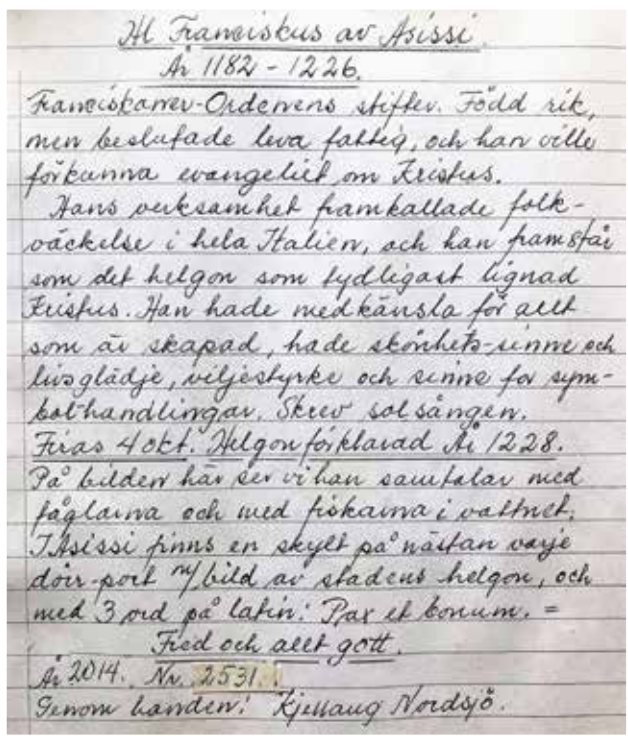 Hl Franciskus av Asissi.
År 1182 - 1226.
Franciskaner-Ordenens stifter. Född rik,
men beslutade leva fattig, och han ville
förkunna evangeliet om Kristus.
Hans verksamhet framkallade folk-
väckelse i hela Italien, och han framstår
som det helgon som tydligast lignad
Kristus. Han hade medkänsla för allt
som är skapad, hade skönhets-sinne och
livsglädje, viljestyrke och sinne for sym-
bolhandlingar. Skrev solsången.
Firas 4 okt. Helgonförklarad År 1228.
På bilden här ser vi han samtalar med
fåglarna och med fiskarna i vattnet.
I Asissi finns en skylt på nästan varje
dörr-port m/bild av stadens helgon, och
med 3 ord på latin: Pax et bonum. =
Fred och allt gott.
År 2014. Nr. 2531.
Genom handen: Kjellaug Nordsjö.